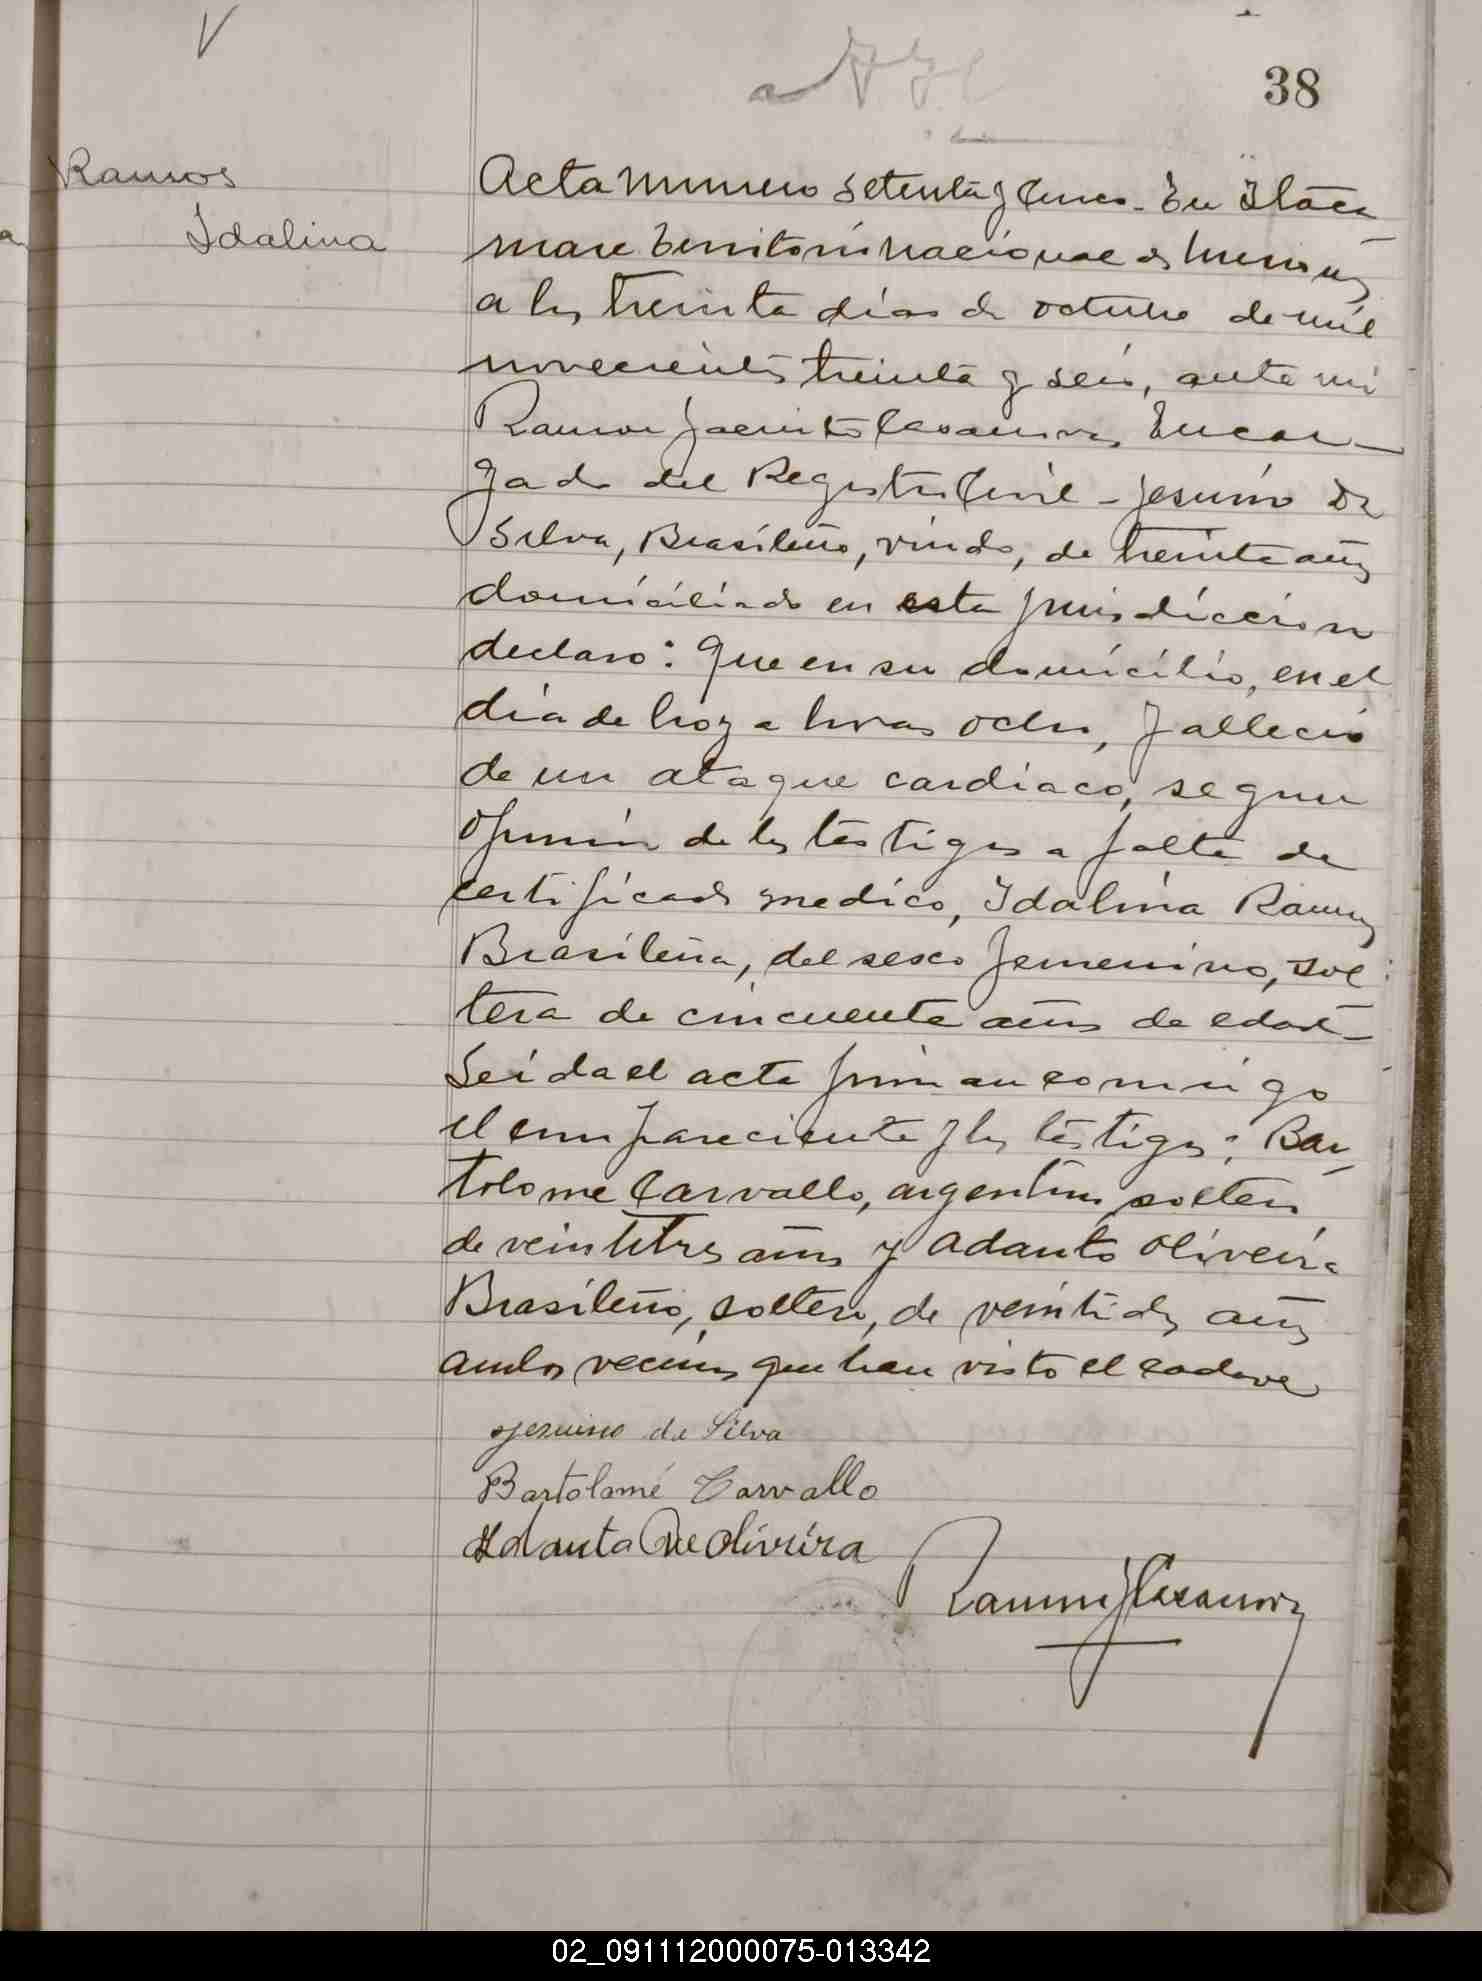 38
Ramos
Idalina
Acta numero setenta y cinco. En Itaca
mare territorio nacional de Misiones
a los treinta dias de octubre de mil
novecientos treinta y seis, ante mi
Ramon Jacinto Casanova, Encar
gado del Registro Civil - Jesuino De
Silva, Brasileño, viudo, de treinta años
domiciliado en esta jurisdiccion
declaro: Que en su domicilio, en el
dia de hoy a horas ocho, fallecio
de un ataque cardiaco, segun
opinión de los testigos a falta de
certificado medico, Idalina Ramos
Brasileña, del sexo femenino, sol
tera de cincuenta años de edad -
Leida el acta firman conmigo
el compareciente y los testigos: Bar
tolome Carvallo, argentino, soltero
de veintitres años y Adauto Oliveira
Brasileño, soltero, de veintidos años
ambos vecinos que han visto el cadaver
Jesuino de Silva
Bartolomé Carvallo
Adauto De Oliveira
Ramon J Casanova
02_091112000075-013342